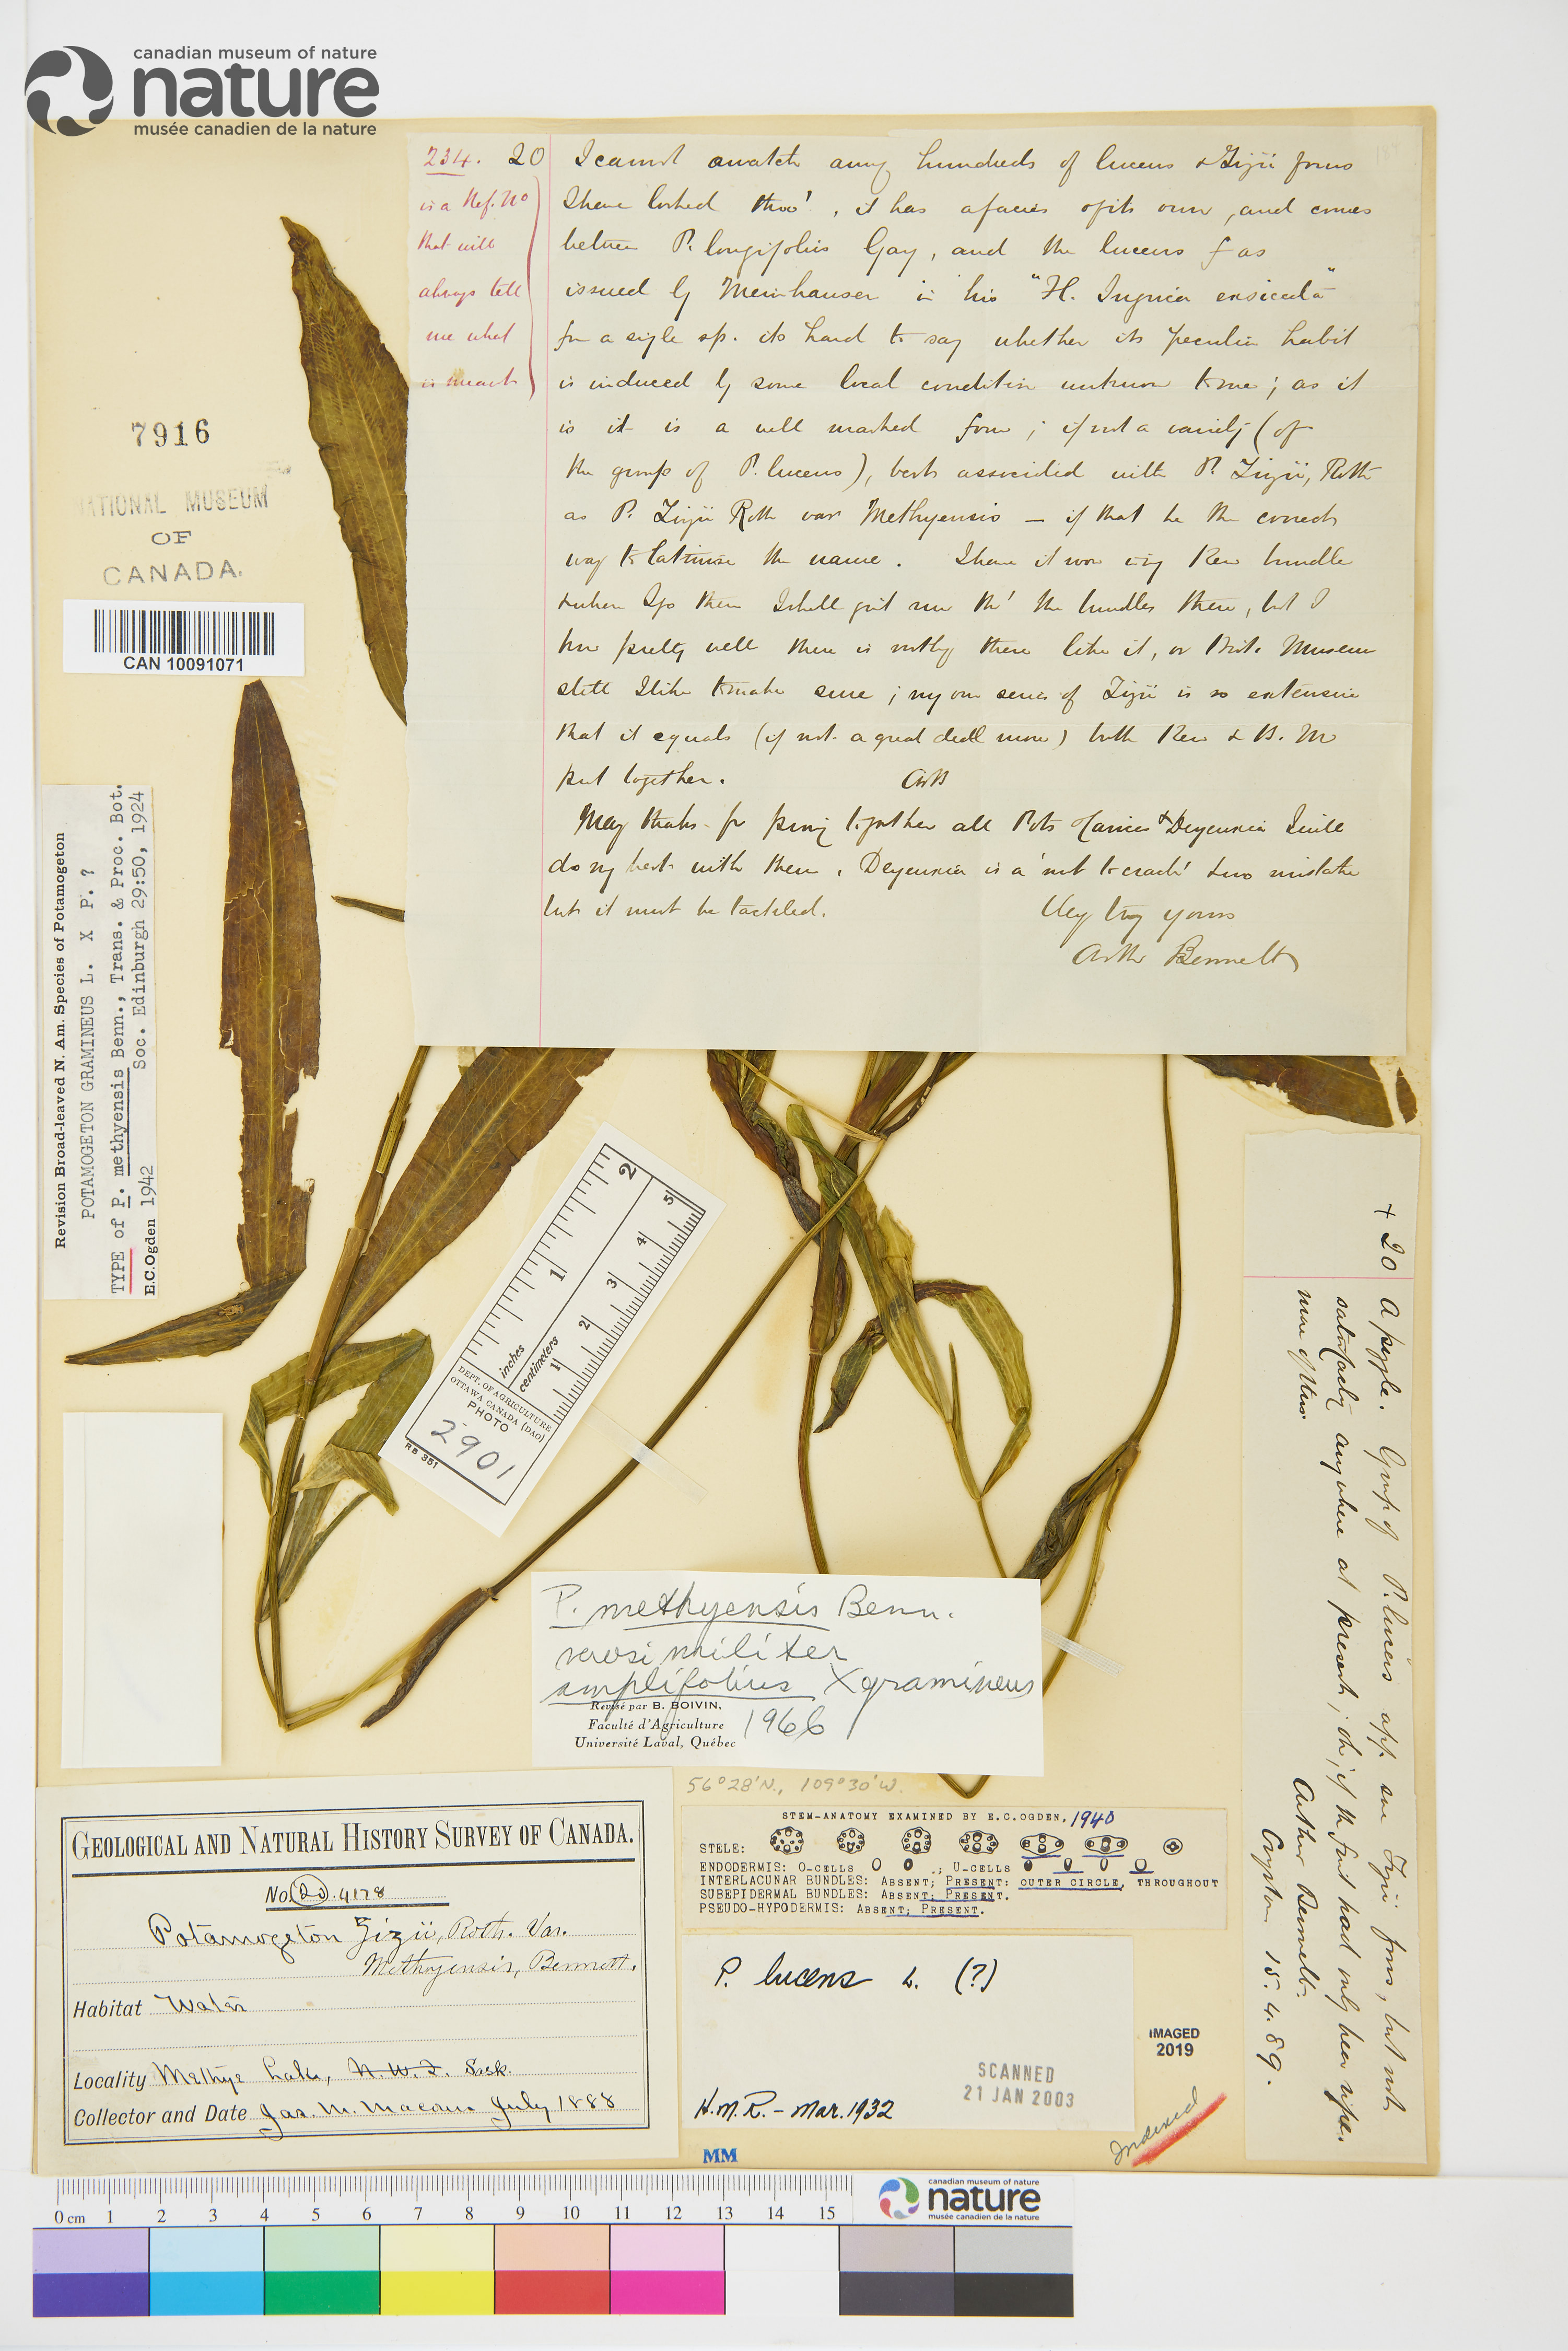 canadian museum of nature
nature
musée canadien de la nature
234. 20
is a Ref. No
that will
always tell
me what
is meant
I cannot match among hundreds of lucens & Zizii forms
I have looked thro', it has a facies of its own, and comes
between P. longifolius Gay, and the lucens f as
issued by Meinhausen in his "H. Ingrica exsiccata"
for a single sp. its hard to say whether its peculiar habit
is induced by some local condition unknown to me; as it
is it is a well marked form; if not a variety (of
the group of P. lucens), best associated with P. Zizii, Roth
as P. Zizii Roth var Methyensis — if that be the correct
way to latinise the name. I have it now in my Kew bundle
& when I go there I shall just run thro' the bundles there, but I
know pretty well there is nothing there like it, or Brit. Museum
still I like to make sure; my own series of Zizii is so extensive
that it equals (if not a great deal more) both Kew & B. M
put together. ArB
Many thanks for putting together all Pots Carices & Deyeuxia I will
do my best with them, Deyeuxia is a 'nut to crack' & no mistake
but it must be tackled. Very truly yours
Arthr Bennett
7916
NATIONAL MUSEUM
OF
CANADA.
CAN 10091071
Revision Broad-leaved N. Am. Species of Potamogeton
POTAMOGETON GRAMINEUS L. X P. ?
TYPE of P. methyensis Benn., Trans. & Proc. Bot.
Soc. Edinburgh 29:50, 1924
E.C.Ogden 1942
inches
1 2
centimeters
1 2 3 4 5
DEPT. OF AGRICULTURE
OTTAWA CANADA (DAO)
PHOTO
2901
RB 351
+ 20 A puzzle. Group of P. lucens app. in Zizii forms, but not
satisfactorily anywhere at present; oh, if the fruit had only been ripe.
more of this. Arthur Bennett.
Croydon 15. 4. 89.
P. methyensis Benn.
verosimiliter
amplifolius X gramineus
Revisé par B. BOIVIN,
Faculté d'Agriculture 1966
Université Laval, Québec
56°28'N., 109°30'W.
GEOLOGICAL AND NATURAL HISTORY SURVEY OF CANADA.
No. (20). 4178
Potamogeton Zizii, Roth. Var.
Methyensis, Bennett.
Habitat Water
Locality Methye Lake, N. W. T. Sask.
Collector and Date Jas. M. Macoun July, 1888
STEM-ANATOMY EXAMINED BY E.C.OGDEN, 1940
STELE:
ENDODERMIS: O-CELLS ; U-CELLS
INTERLACUNAR BUNDLES: ABSENT; PRESENT: OUTER CIRCLE, THROUGHOUT
SUBEPIDERMAL BUNDLES: ABSENT; PRESENT.
PSEUDO-HYPODERMIS: ABSENT; PRESENT.
P. lucens L. (?)
H.M.R. – Mar. 1932
SCANNED
21 JAN 2003
IMAGED
2019
Indexed
MM
0 cm 1 2 3 4 5 6 7 8 9 10 11 12 13 14 15
canadian museum of nature
nature
musée canadien de la nature